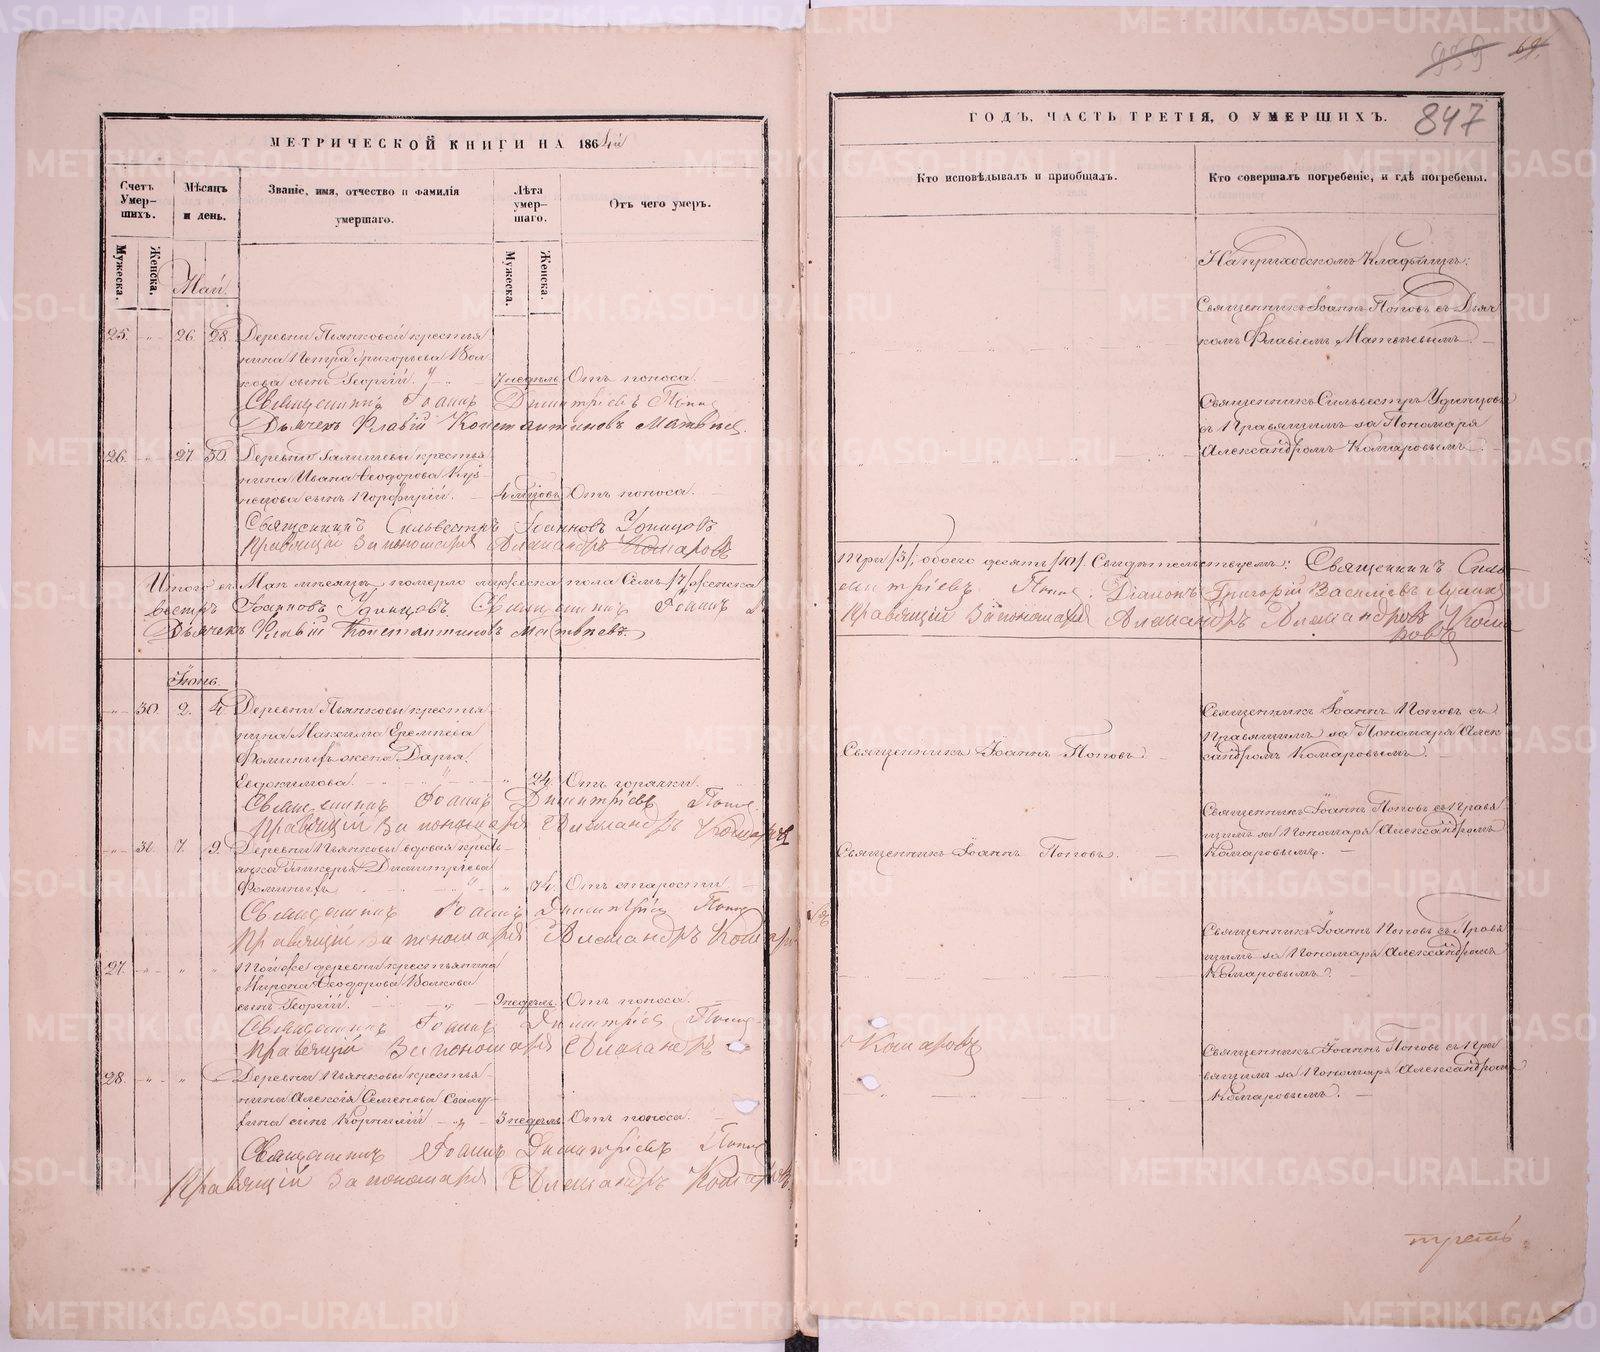 959 69.
847
МЕТРИЧЕСКОЙ КНИГИ НА 1864й
Счетъ Умер-шихъ.
Мѣсяцъ и день.
Званіе, имя, отчество и фамилія умершаго.
Лѣта умер-шаго.
Отъ чего умеръ.
Мужеска.
Женска.
Мужеска.
Женска.
Май.
25. 26 28 Деревни Пьянковой крестья
нина Петра Григорьева Вол
кова сынъ Георгій. 7 недѣль Отъ поноса.
Священникъ Іоаннъ Димитріевъ Поповъ
Дьячекъ Флавій Константиновъ Матвѣевъ
26. 27 30 Деревни Галишевы крестья
нина Ивана Ѳеодорова Куз
нецова сынъ Порфирій. 4 мѣсяцовъ Отъ поноса.
Священникъ Сильвестръ Іоанновъ Удинцовъ
Правящій За пономаря Александръ Комаровъ
Итого въ Маи мѣсяцѣ померло мужеска пола Семь /7/ женска
вестръ Іоанновъ Удинцовъ Священникъ Іоаннъ Д
Дьячекъ Флавій Константиновъ Матвѣевъ
Іюнь.
30. 2. 4. Деревни Пьянковы крестья
нина Максима Еремѣева
жена Дарья
Евдокимова. 24. Отъ горячки.
Священникъ Іоаннъ Димитріевъ Поповъ
Правящій За пономаря Александръ Комаровъ
31. 7. 9. Деревни Пьянковы вдовая кресть
янка Гликерья Димитріева
74. Отъ старости
Священникъ Іоаннъ Димитріевъ Поповъ
Правящій За пономаря Александръ Комаровъ
27. Той же деревни крестьянина
Мирона Ѳеодорова Волкова
сынъ Георгій. 9 недѣль. Отъ поноса.
Священникъ Іоаннъ Димитріевъ Поповъ
Правящій За пономаря Александръ
28. Деревни Пьянковы крестья
нина Алексія Семенова
сынъ Корнилій 3 недѣль Отъ поноса.
Священникъ Іоаннъ Димитріевъ Поповъ
Правящій За пономаря Александръ Комаровъ
ГОДЪ, ЧАСТЬ ТРЕТІЯ, О УМЕРШИХЪ.
Кто исповѣдывалъ и пріобщалъ.
Кто совершалъ погребеніе, и гдѣ погребены.
На приходскомъ кладбищѣ:
Священникъ Іоаннъ Поповъ съ Дьяч
комъ Флавіемъ Матвѣевымъ.
Священникъ Сильвестръ Удинцовъ
съ Правящимъ за Пономаря
Александромъ Комаровымъ.
три /3/, обоего десять /10/. Свидѣтельствуемъ: Священникъ Силь
митріевъ Поповъ. Діаконъ Григорій Василіевъ
Правящій За пономаря Александръ Александровъ Кома
ровъ
Священникъ Іоаннъ Поповъ.
Священникъ Іоаннъ Поповъ съ
Правящимъ за Пономаря Алек
сандромъ Комаровымъ.
Священникъ Іоаннъ Поповъ.
Священникъ Іоаннъ Поповъ съ Правя
щимъ за Пономаря Александромъ
Комаровымъ.
Священникъ Іоаннъ Поповъ съ Правя
щимъ за Пономаря Александромъ
Комаровымъ.
Комаровъ
Священникъ Іоаннъ Поповъ съ Пра
вящимъ за Пономаря Александромъ
Комаровымъ.
METRIKI.GASO-URAL.RU